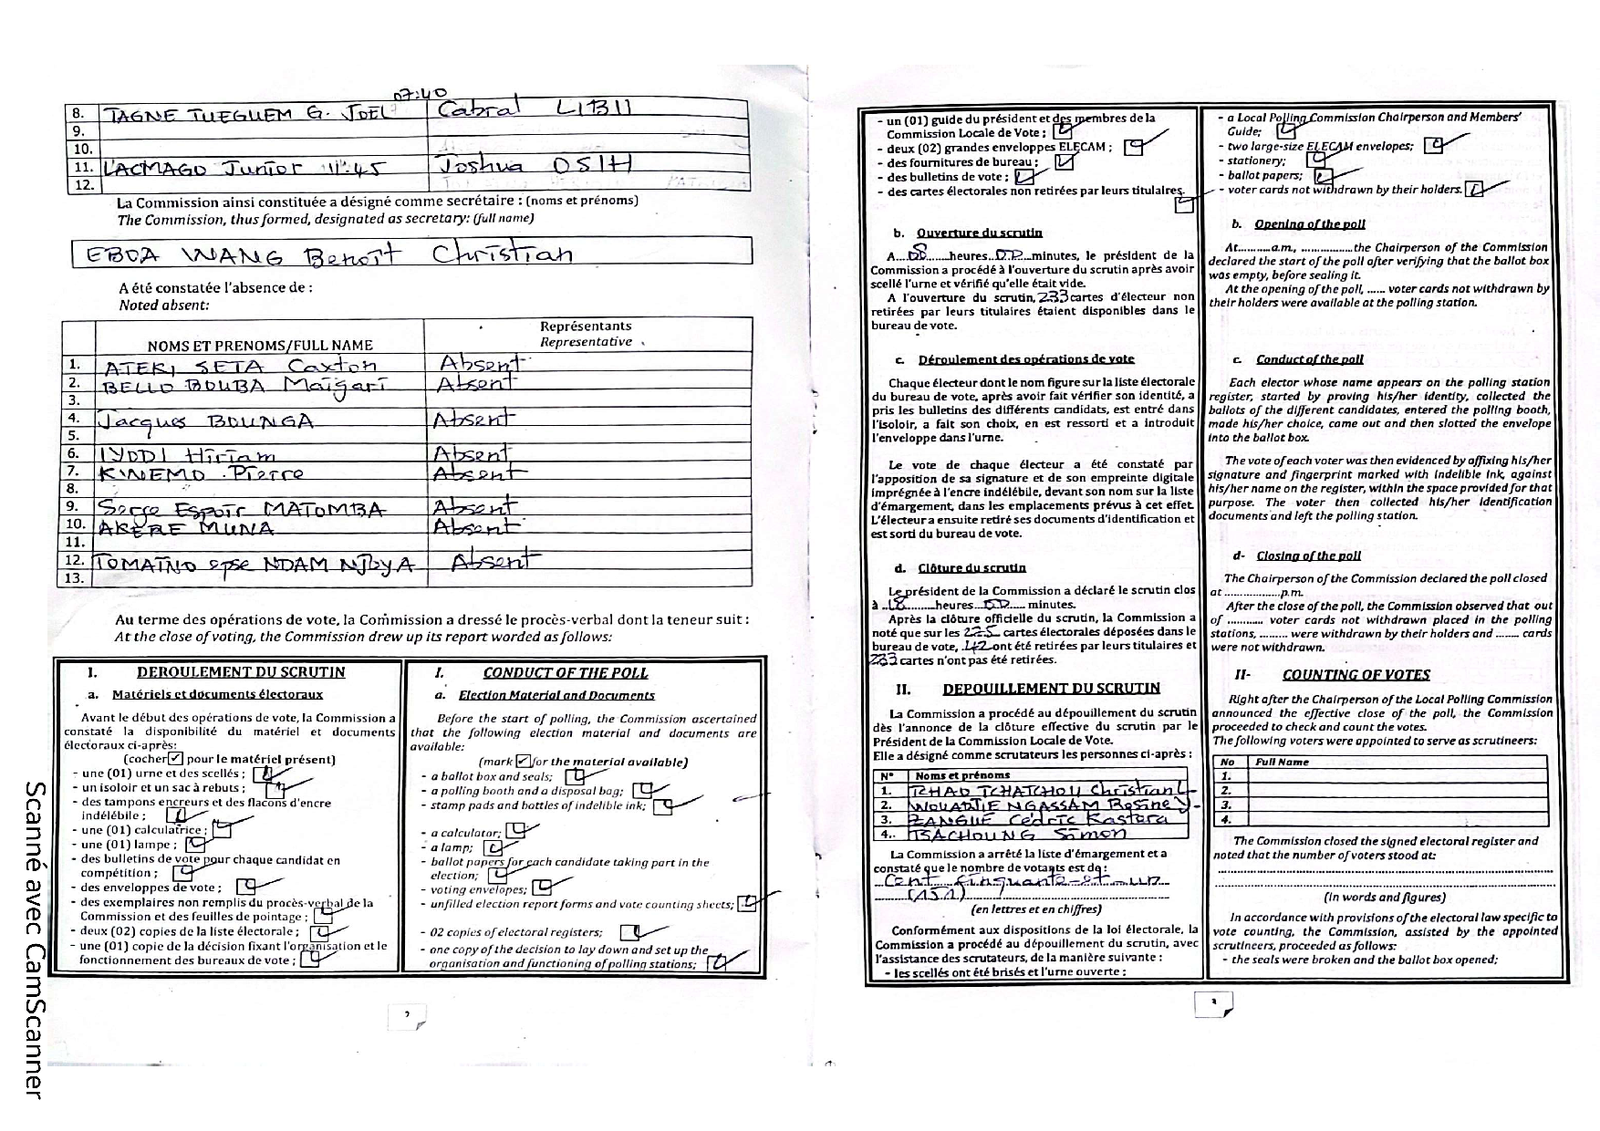 07:40
8. TAGNE TUEGUEM G. JOEL Cabral LIBII
9.
10.
11. LACMAGO Junior 11:45 Joshua OSIH
12.
La Commission ainsi constituée a désigné comme secrétaire : (noms et prénoms)
The Commission, thus formed, designated as secretary: (full name)
EBOA WANG Benoît Christian
A été constatée l'absence de :
Noted absent:
NOMS ET PRENOMS/FULL NAME Représentants
Representative
1. ATEKI SETA Caxton Absent
2. BELLO BOUBA Maïgari Absent
3.
4. Jacques BOUNGA Absent
5.
6. IYODI Hiriam Absent
7. KINEMO Pierre Absent
8.
9. Serge Espoir MATOMBA Absent
10. AKERE MUNA Absent
11.
12. TOMAÏNO epse NDAM NJOYA Absent
13.
Au terme des opérations de vote, la Commission a dressé le procès-verbal dont la teneur suit :
At the close of voting, the Commission drew up its report worded as follows:
I. DEROULEMENT DU SCRUTIN
a. Matériels et documents électoraux
Avant le début des opérations de vote, la Commission a
constaté la disponibilité du matériel et documents
électoraux ci-après:
(cocher ✓ pour le matériel présent)
- une (01) urne et des scellés ;
- un isoloir et un sac à rebuts ;
- des tampons encreurs et des flacons d'encre
indélébile ;
- une (01) calculatrice ;
- une (01) lampe ;
- des bulletins de vote pour chaque candidat en
compétition ;
- des enveloppes de vote ;
- des exemplaires non remplis du procès-verbal de la
Commission et des feuilles de pointage ;
- deux (02) copies de la liste électorale ;
- une (01) copie de la décision fixant l'organisation et le
fonctionnement des bureaux de vote ;
I. CONDUCT OF THE POLL
a. Election Material and Documents
Before the start of polling, the Commission ascertained
that the following election material and documents are
available:
(mark ✓ for the material available)
- a ballot box and seals;
- a polling booth and a disposal bag;
- stamp pads and bottles of indelible ink;
- a calculator;
- a lamp;
- ballot papers for each candidate taking part in the
election;
- voting envelopes;
- unfilled election report forms and vote counting sheets;
- 02 copies of electoral registers;
- one copy of the decision to lay down and set up the
organisation and functioning of polling stations;
2
- un (01) guide du président et des membres de la
Commission Locale de Vote ;
- deux (02) grandes enveloppes ELECAM ;
- des fournitures de bureau ;
- des bulletins de vote ;
- des cartes électorales non retirées par leurs titulaires.
b. Ouverture du scrutin
A 08 heures 00 minutes, le président de la
Commission a procédé à l'ouverture du scrutin après avoir
scellé l'urne et vérifié qu'elle était vide.
A l'ouverture du scrutin, 233 cartes d'électeur non
retirées par leurs titulaires étaient disponibles dans le
bureau de vote.
c. Déroulement des opérations de vote
Chaque électeur dont le nom figure sur la liste électorale
du bureau de vote, après avoir fait vérifier son identité, a
pris les bulletins des différents candidats, est entré dans
l'isoloir, a fait son choix, en est ressorti et a introduit
l'enveloppe dans l'urne.
Le vote de chaque électeur a été constaté par
l'apposition de sa signature et de son empreinte digitale
imprégnée à l'encre indélébile, devant son nom sur la liste
d'émargement, dans les emplacements prévus à cet effet.
L'électeur a ensuite retiré ses documents d'identification et
est sorti du bureau de vote.
d. Clôture du scrutin
Le président de la Commission a déclaré le scrutin clos
à 18 heures 00 minutes.
Après la clôture officielle du scrutin, la Commission a
noté que sur les 225 cartes électorales déposées dans le
bureau de vote, 42 ont été retirées par leurs titulaires et
233 cartes n'ont pas été retirées.
II. DEPOUILLEMENT DU SCRUTIN
La Commission a procédé au dépouillement du scrutin
dès l'annonce de la clôture effective du scrutin par le
Président de la Commission Locale de Vote.
Elle a désigné comme scrutateurs les personnes ci-après :
N° Noms et prénoms
1. TCHAO TCHATCHOU Christian
2. WOUADJIE NGASSAM Rosine
3. ZANGUE Cédric Kastora
4. TSACHOUNG Simon
La Commission a arrêté la liste d'émargement et a
constaté que le nombre de votants est de:
Cent Cinquante-et-un
(151)
(en lettres et en chiffres)
Conformément aux dispositions de la loi électorale, la
Commission a procédé au dépouillement du scrutin, avec
l'assistance des scrutateurs, de la manière suivante :
- les scellés ont été brisés et l'urne ouverte ;
- a Local Polling Commission Chairperson and Members'
Guide;
- two large-size ELECAM envelopes;
- stationery;
- ballot papers;
- voter cards not withdrawn by their holders.
b. Opening of the poll
At..........a.m., .................the Chairperson of the Commission
declared the start of the poll after verifying that the ballot box
was empty, before sealing it.
At the opening of the poll, ...... voter cards not withdrawn by
their holders were available at the polling station.
c. Conduct of the poll
Each elector whose name appears on the polling station
register, started by proving his/her identity, collected the
ballots of the different candidates, entered the polling booth,
made his/her choice, came out and then slotted the envelope
into the ballot box.
The vote of each voter was then evidenced by affixing his/her
signature and fingerprint marked with indelible ink, against
his/her name on the register, within the space provided for that
purpose. The voter then collected his/her identification
documents and left the polling station.
d- Closing of the poll
The Chairperson of the Commission declared the poll closed
at ..................p.m.
After the close of the poll, the Commission observed that out
of ............ voter cards not withdrawn placed in the polling
stations, ......... were withdrawn by their holders and ........ cards
were not withdrawn.
II- COUNTING OF VOTES
Right after the Chairperson of the Local Polling Commission
announced the effective close of the poll, the Commission
proceeded to check and count the votes.
The following voters were appointed to serve as scrutineers:
No Full Name
1.
2.
3.
4.
The Commission closed the signed electoral register and
noted that the number of voters stood at:
(in words and figures)
In accordance with provisions of the electoral law specific to
vote counting, the Commission, assisted by the appointed
scrutineers, proceeded as follows:
- the seals were broken and the ballot box opened;
3
Scanné avec CamScanner